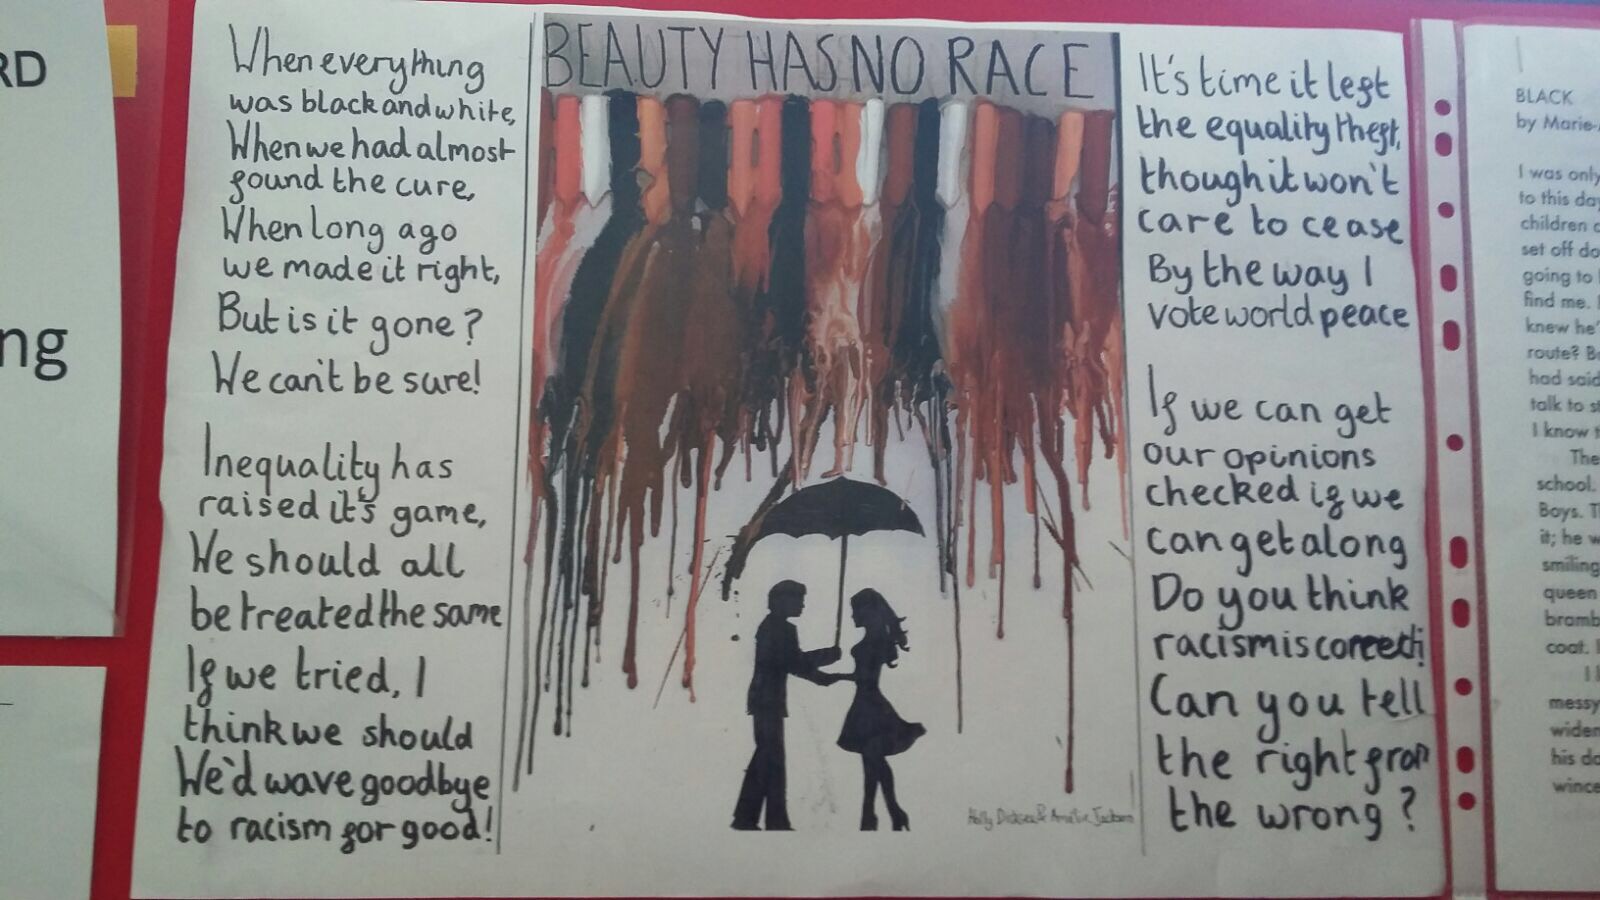 RD
ng
When everything
was black and white,
When we had almost
found the cure,
When long ago
we made it right,
But is it gone?
We can't be sure!
Inequality has
raised it's game,
We should all
be treated the same
If we tried, I
think we should
We'd wave goodbye
to racism for good!
BEAUTY HAS NO RACE
Holly & Amélie Jackson
It's time it left
the equality theft,
though it won't
care to cease
By the way I
vote world peace
If we can get
our opinions
checked if we
can get along
Do you think
racism is correct?
Can you tell
the right from
the wrong?
BLACK
by Marie-
I was only
to this day
children
set off do
going to
find me.
knew he'
route? B
had said
talk to
I know
The
school.
Boys. T
it; he w
smiling
queen
bramb
coat.
I
messy
widen
his da
wince